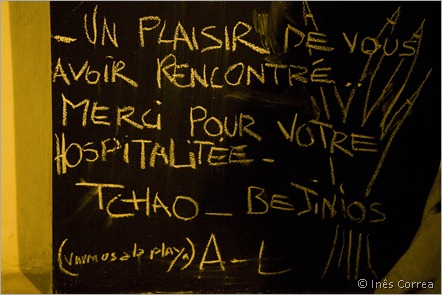 - UN PLAISIR DE VOUS
AVOIR RENCONTRÉ..
MERCI POUR VOTRE
HOSPITALITEE -
TCHAO - BEJINIOS
(VAVMOS à la playa) A-L
© Inês Correa